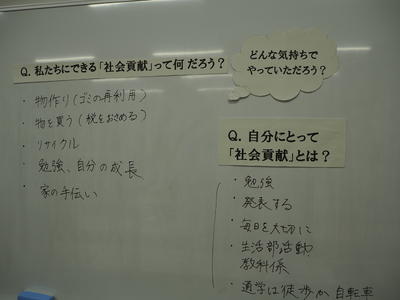 Q. 私たちにできる「社会貢献」って何だろう？
・物作り(ゴミの再利用)
・物を買う(税をおさめる)
・リサイクル
・勉強、自分の成長
・家の手伝い
どんな気持ちで
やっていただろう？
Q. 自分にとって
「社会貢献」とは？
・勉強
・発表する
・毎日を大切に
・生活部活動
教科係
・通学は徒歩か自転車